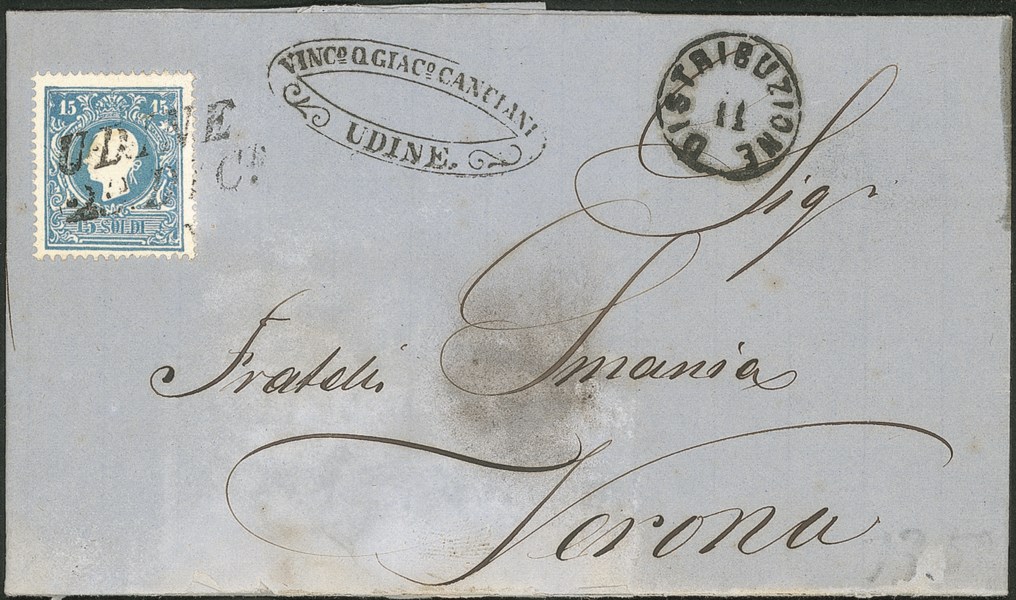 15 15
15 SOLDI
UDINE
VINCº Q GIACº CANCIANI
UDINE.
DISTRIBUZIONE
11
Sigr
Fratelli Smania
Verona